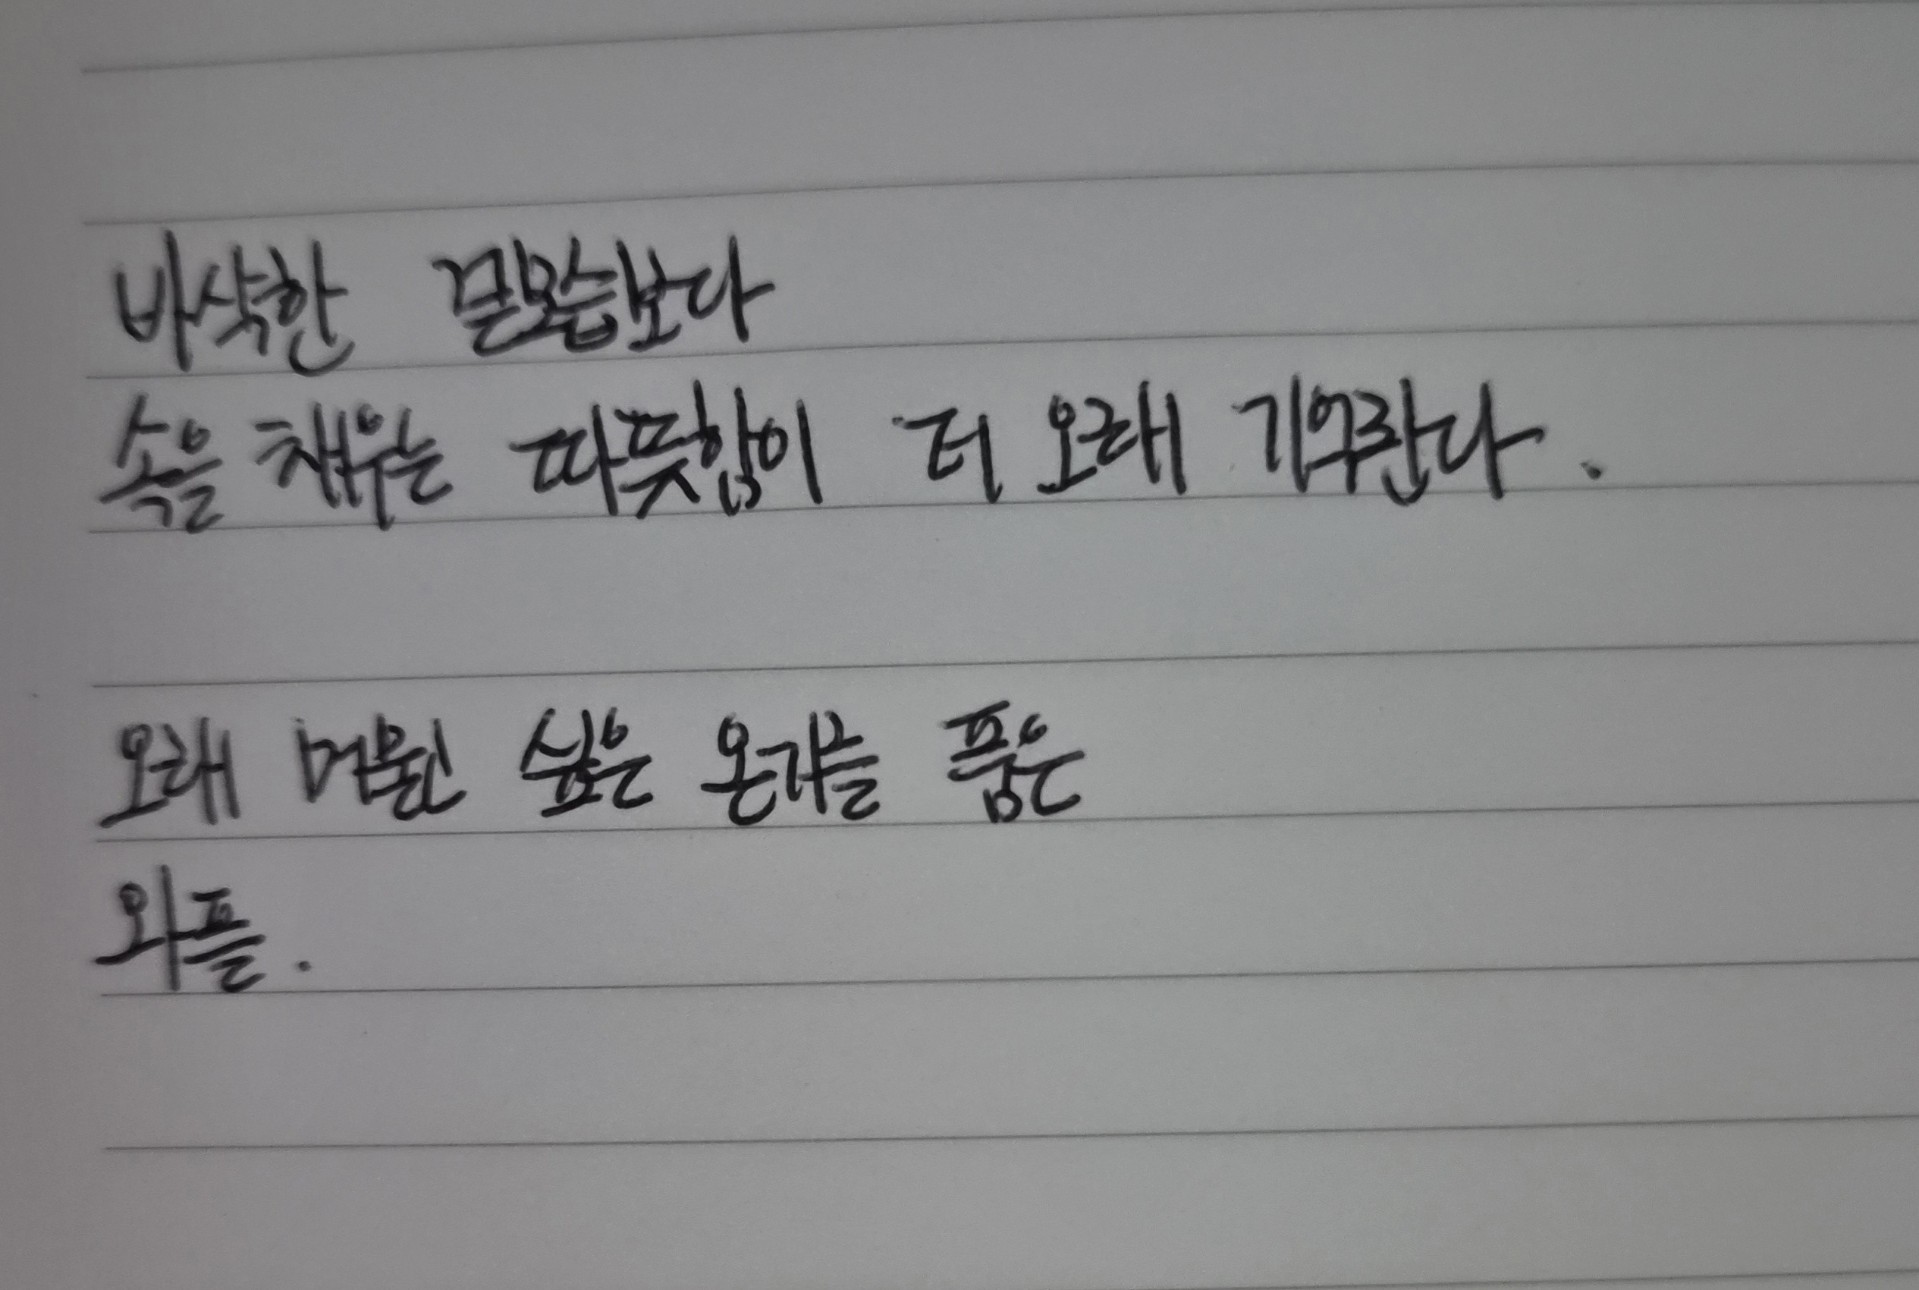 바삭한 겉모습보다
속을 채우는 따뜻함이 더 오래 기억된다.
오래 머물고 싶은 온기를 품은
와플.